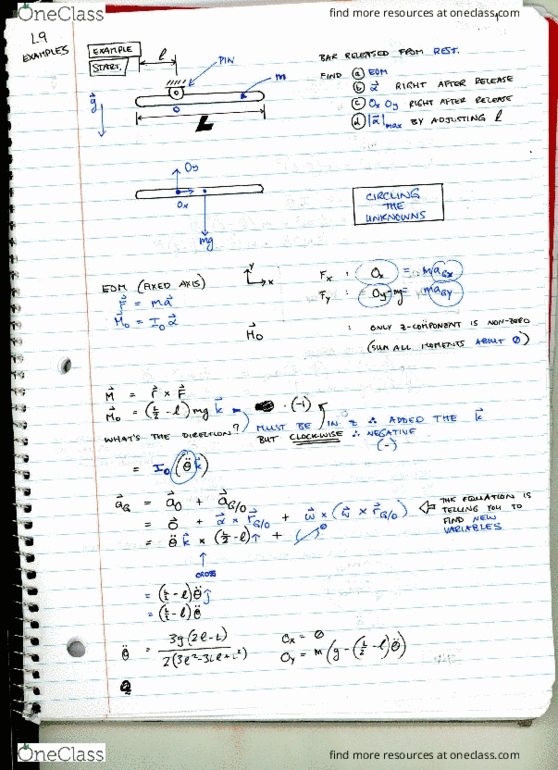 OneClass
find more resources at oneclass.com
L9
EXAMPLES
EXAMPLE
START.
l
PIN
m
g
O
L
BAR RELEASED FROM REST.
FIND (a) EOM
(b) α RIGHT AFTER RELEASE
(c) Ox Oy RIGHT AFTER RELEASE
(d) |α|max BY ADJUSTING l
Oy
Ox
mg
CIRCLING
THE
UNKNOWNS
EOM (FIXED AXIS)
F = ma
Mo = Io α
Y
x
Fx : Ox = maGx
Fy : Oy - mg = maGy
Mo : ONLY Z-COMPONENT IS NON-ZERO
(SUM ALL MOMENTS ABOUT O)
M = r × F
Mo = (L/2 - l) mg k · (-1)
WHAT'S THE DIRECTION? MUST BE IN z ∴ ADDED THE k
BUT CLOCKWISE ∴ NEGATIVE
(-)
= Io (θ̈ k)
aG = aO + aG/O
= 0 + α × rG/O + ω × (ω × rG/O)
THE EQUATION IS
TELLING YOU TO
FIND NEW
VARIABLES
= θ̈ k × (L/2 - l) î + 0
CROSS
= (L/2 - l) θ̈ ĵ
= (L/2 - l) θ̈
θ̈ = 3g(2l-L) / 2(3l²-3Ll+L²)
Ox = 0
Oy = m(g - (L/2 - l) θ̈)
OneClass
find more resources at oneclass.com